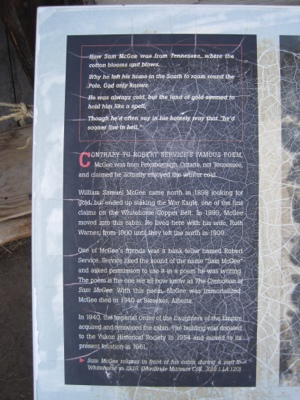 Now Sam McGee was from Tennessee, where the
cotton blooms and blows.
Why he left his home in the South to roam round the
Pole, God only knows.
He was always cold, but the land of gold seemed to
hold him like a spell;
Though he'd often say in his homely way that "he'd
sooner live in hell."
CONTRARY TO ROBERT SERVICE'S FAMOUS POEM,
McGee was from Peterborough, Ontario, not Tennessee,
and claimed he actually enjoyed the winter cold.
William Samuel McGee came north in 1898 looking for
gold, but ended up staking the War Eagle, one of the first
claims on the Whitehorse Copper Belt. In 1899, McGee
moved into this cabin. He lived here with his wife, Ruth
Warnes, from 1900 until they left the north in 1909.
One of McGee's friends was a bank teller named Robert
Service. Service liked the sound of the name "Sam McGee"
and asked permission to use it in a poem he was writing.
The poem is the one we all now know as The Cremation of
Sam McGee. With this poem, McGee was immortalized.
McGee died in 1940 at Beiseker, Alberta.
In 1940, the Imperial Order of the Daughters of the Empire
acquired and renovated the cabin. The building was donated
to the Yukon Historical Society in 1954 and moved to its
present location in 1961.
Sam McGee relaxes in front of his cabin during a visit to
Whitehorse in (MacBride Museum Coll.